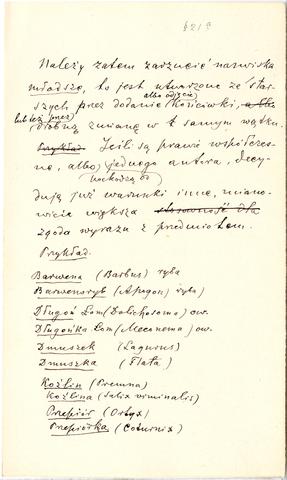 § 21 9
Należy zatem zarzucić nazwiska
młodsze, to jest utworzone ze star-
albo odjęcie
szych przez dodanie końcówki, albo
lub też przez
drobną zmianę w t samym wątku.
Przykład. Jeśli są prawie współczes-
ne, albo jednego autora, decy-
pochodzą od
dują już warunki inne, miano-
wicie większa stosowność dla
zgoda wyrazu z przedmiotem.
Przykład.
Barwena (Barbus) ryba
Barwenoryb (Apogon) ryba
Długoń Łom (Dolichosoma) ow.
Długońka Łom (Mecynema) ow.
Dmuszek (Lagurus)
Dmuszka (Flata)
Koźlin (Premna)
Koźlina (Salix viminalis)
Przepiór (Ortyx)
Przepiórka (Coturnix)